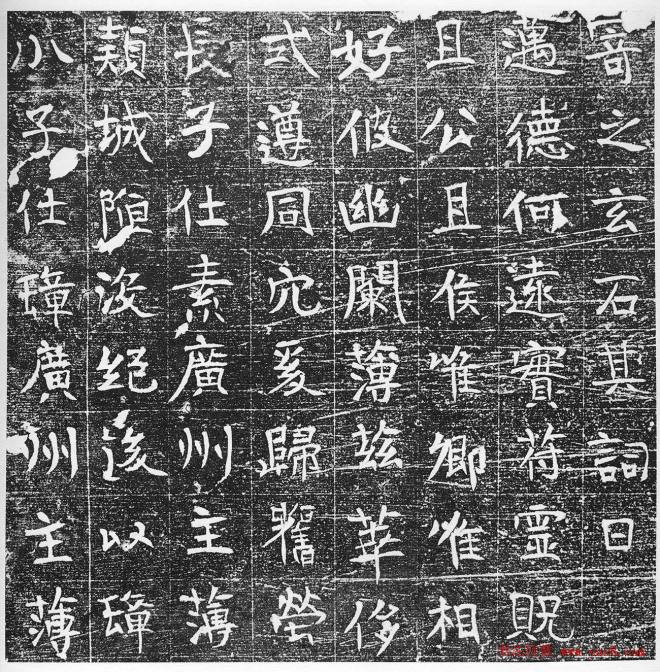 寄之玄石其詞曰
邁德何遠寶苻靈貺
且公且侯唯卿惟相
好佊幽闌薄茲華侈
式遵同穴爰歸舊塋
長子仕素廣州主薄
穎城隕淡絕後以暲
小子仕暲廣州主薄